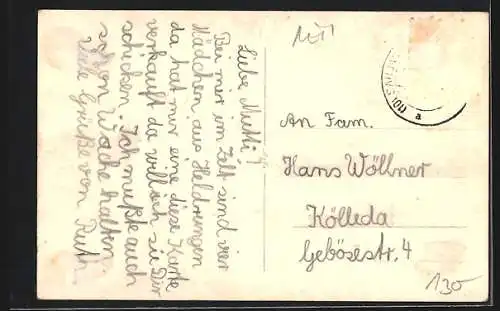 Liebe Mutti!
Bei mir im Zelt sind vier
Mädchen aus Heldrungen
da hat mir eine diese Karte
verkauft da will ich sie Dir
schicken. Ich mußte auch
schon Wache halten
Viele Grüße von Ruth.
An Fam.
Hans Wöllner
Kölleda
Gebösestr. 4
130
a